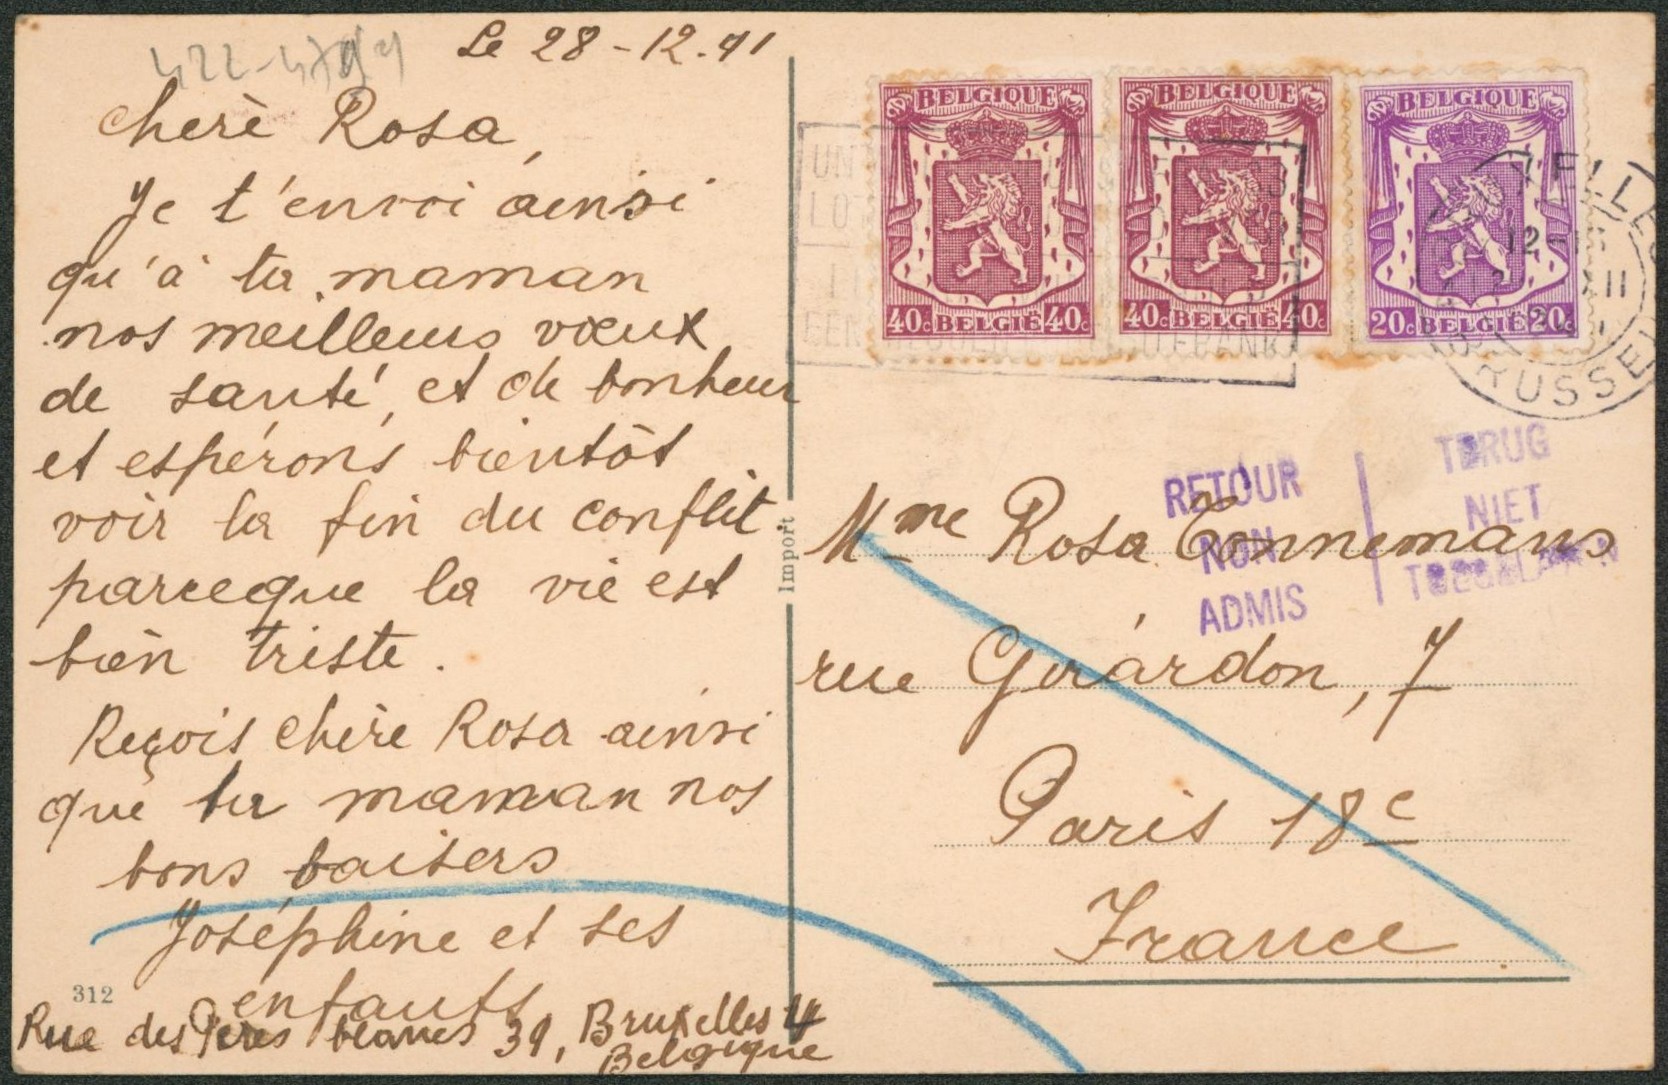 Le 28-12.41
chere Rosa,
Je t'envoi ainsi
qu'à ta maman
nos meilleurs vœux
de santé, et de bonheur
et espérons bientôt
voir la fin du conflit
parceque la vie est
bien triste.
Reçois chère Rosa ainsi
que ta maman nos
bons baisers
Joséphine et ses
enfants
312
Rue des Peres blancs 39, Bruxelles 4
Belgique
Import
BELGIQUE
40c BELGIË 40c
BELGIQUE
40c BELGIË 40c
BELGIQUE
20c BELGIË 20c
XII
RETOUR
NON
ADMIS
TERUG
NIET
Mme Rosa Tonnemans
rue Girardon, 7
Paris 18e
France